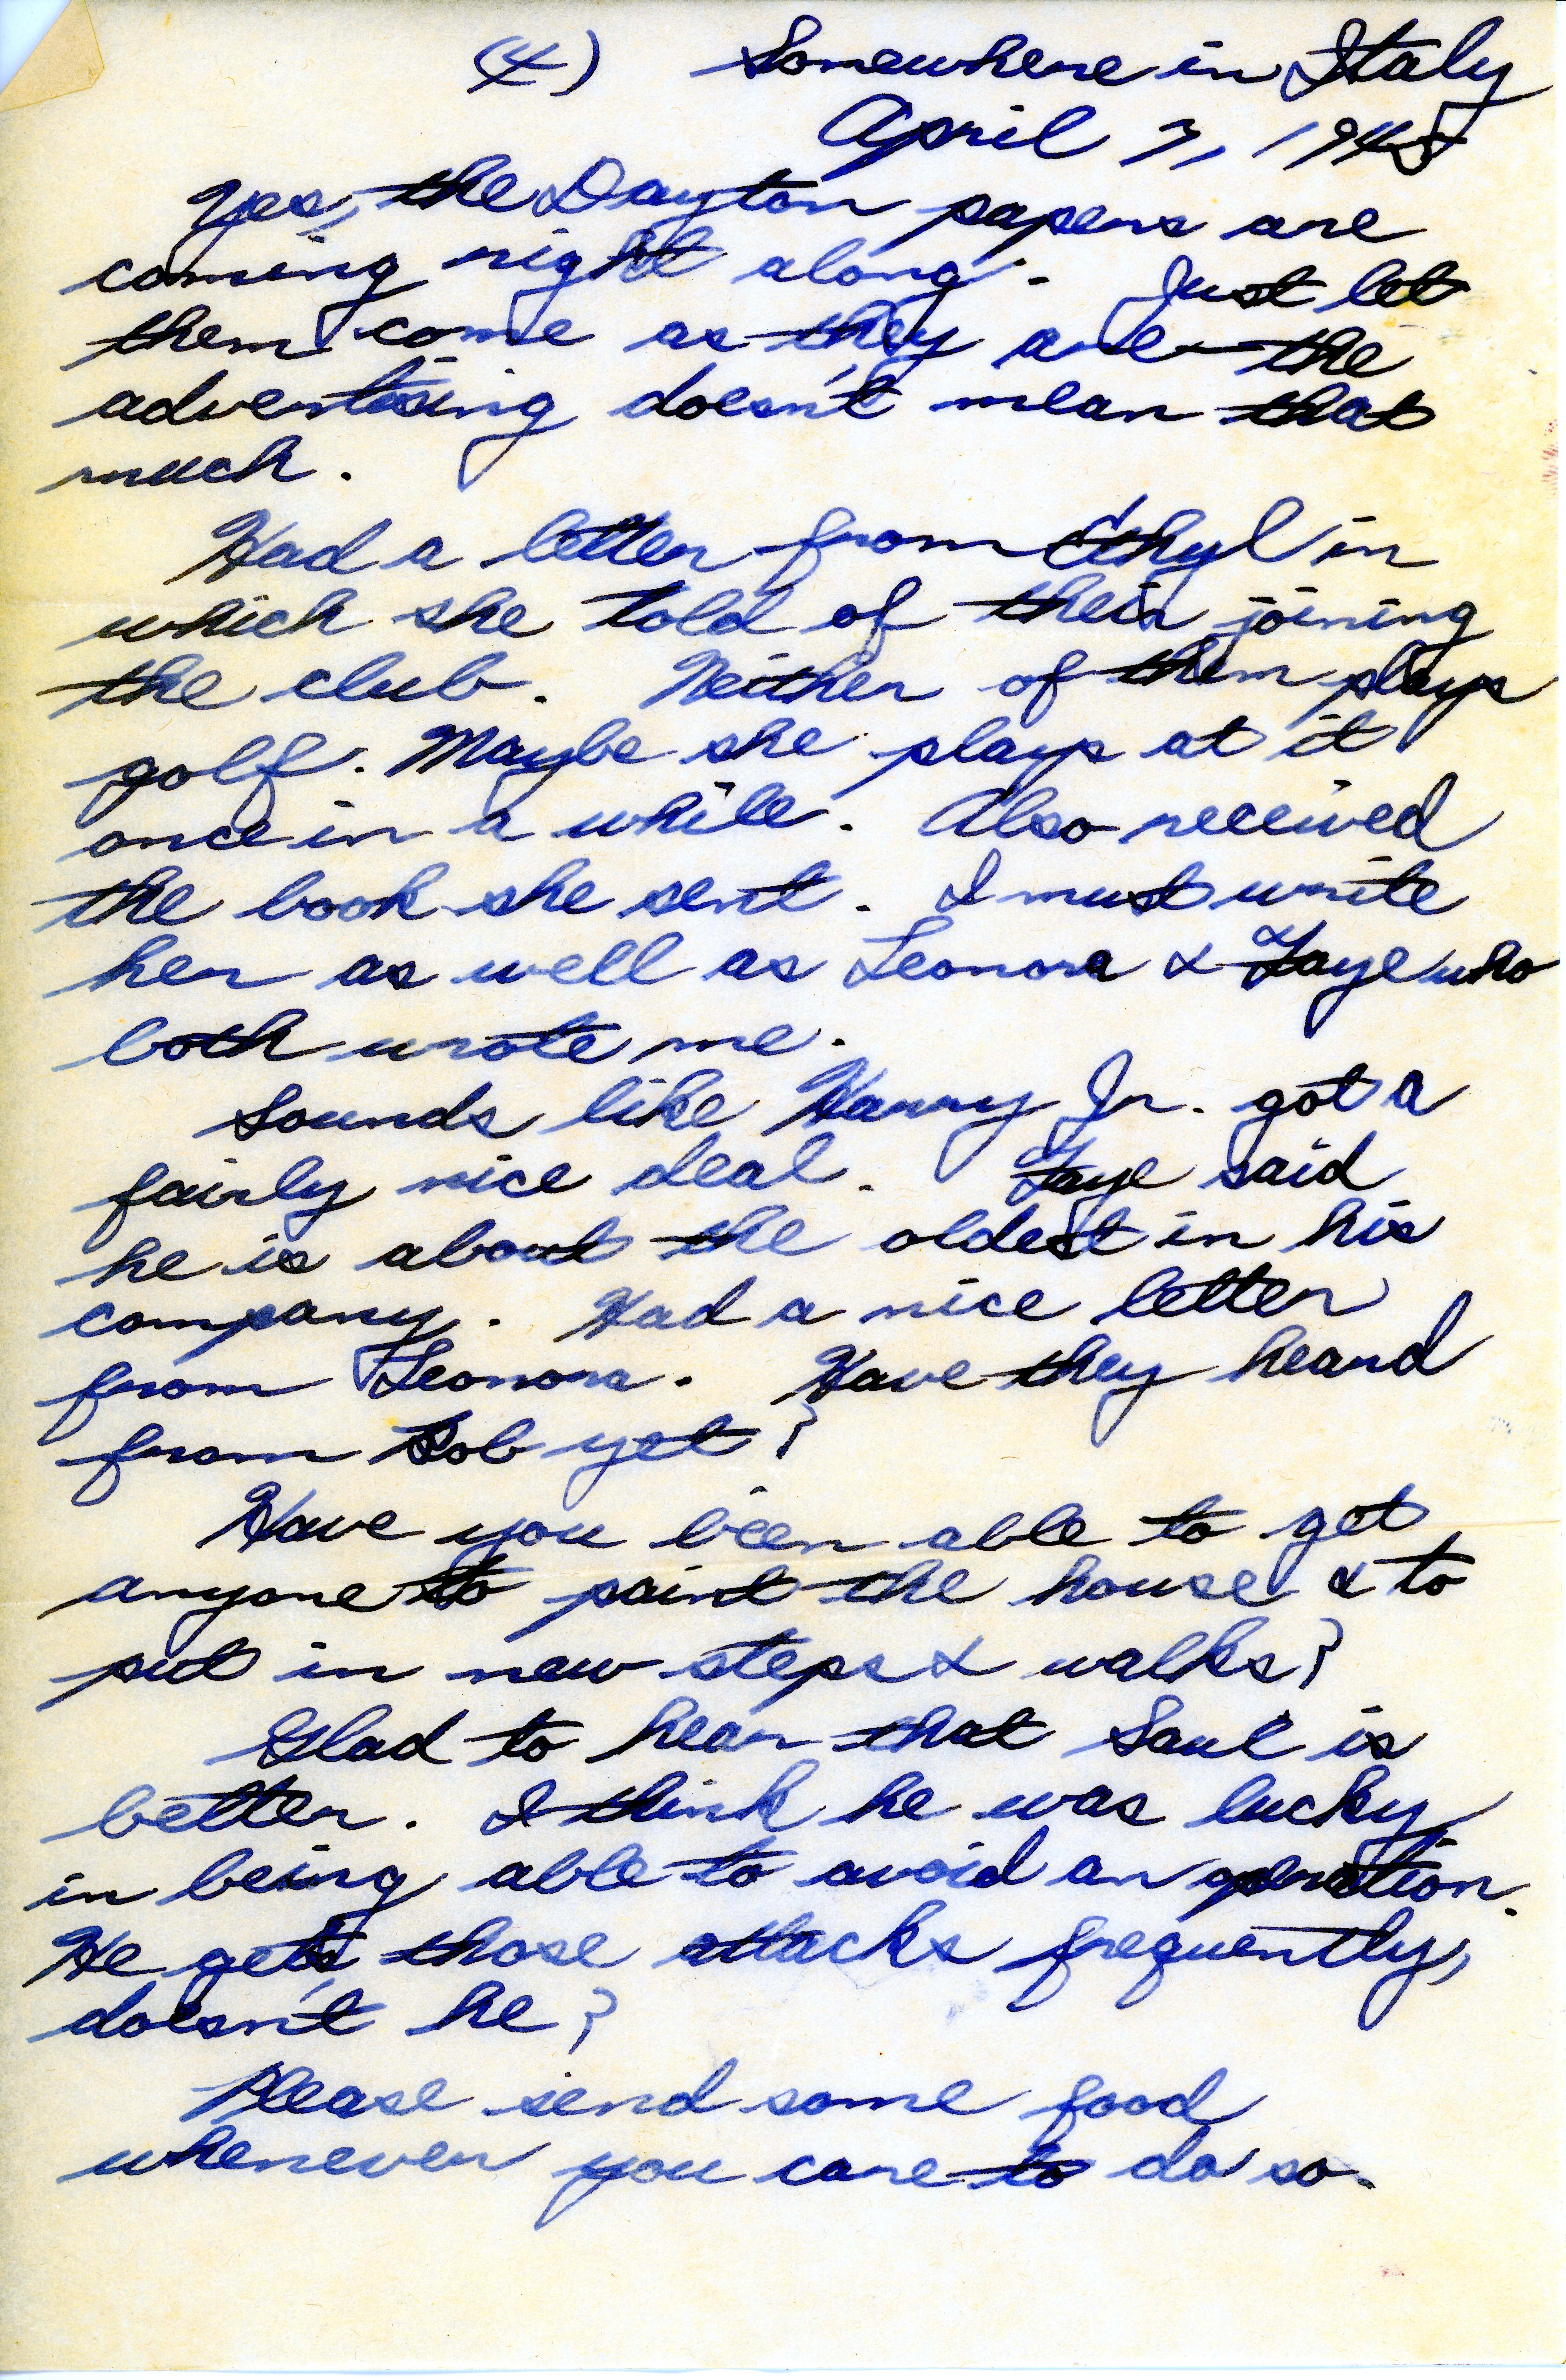 (4) Somewhere in Italy
April 7, 1945
Yes, the Dayton papers are
coming right along. Just let
them come as they are – the
advertising doesn't mean that
much.
Had a letter from Ethyl in
which she told of their joining
the club. Neither of them plays
golf. Maybe she plays at it
once in a while. Also received
the book she sent. I must write
her as well as Leonora & Faye who
both wrote me.
Sounds like Harry Jr. got a
fairly nice deal. Faye said
he is about the oldest in his
company. Had a nice letter
from Leonora. Have they heard
from Bob yet?
Have you been able to get
anyone to paint the house & to
put in new steps & walks?
Glad to hear that Saul is
better. I think he was lucky
in being able to avoid an operation.
He gets those attacks frequently,
doesn't he?
Please send some food
whenever you care to do so.